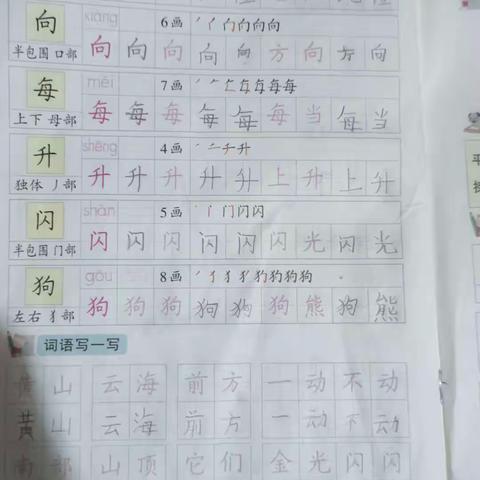 向 xiàng 6画
半包围 口部 向 向 向 向 向 方 向 方 向
每 měi 7画
上下 母部 每 每 每 每 每 每 当 每 当
升 shēng 4画
独体 丿部 升 升 升 升 升 上 升 上 升
闪 shǎn 5画
半包围 门部 闪 闪 闪 闪 闪 闪 光 闪 光
狗 gǒu 8画
左右 犭部 狗 狗 狗 狗 狗 狗 熊 狗 熊
词语写一写
黄山 云海 前方 一动不动
黄山 云海 前方 一动不动
南部 山顶 它们 金光闪闪